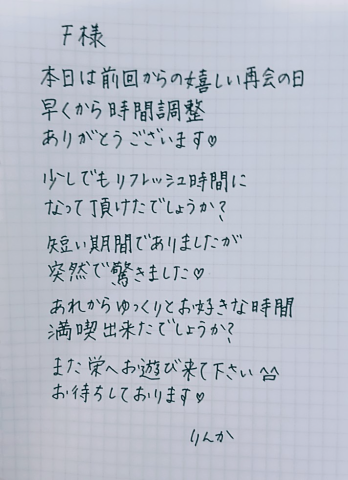 F様
本日は前回からの嬉しい再会の日
早くから時間調整
ありがとうございます♡
少しでもリフレッシュ時間に
なって頂けたでしょうか?
短い期間でありましたが
突然で驚きました♡
あれからゆっくりとお好きな時間
満喫出来たでしょうか?
また栄へお遊び来て下さい^^
お待ちしております♡
りんか